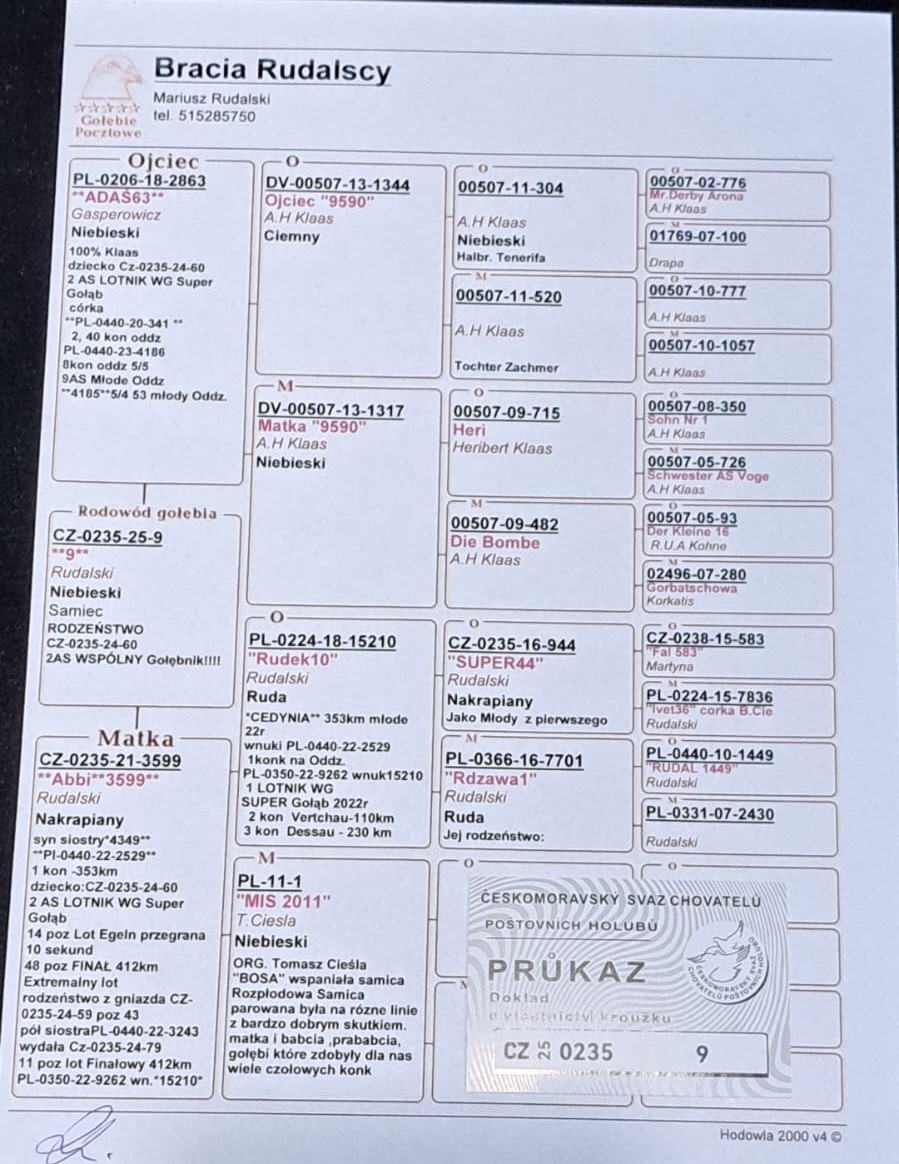 Bracia Rudalscy
Mariusz Rudalski
tel. 515285750
Gołębie
Pocztowe
Ojciec
PL-0206-18-2863
**ADAŚ63**
Gasperowicz
Niebieski
100% Klaas
dziecko Cz-0235-24-60
2 AS LOTNIK WG Super
Gołąb
córka
**PL-0440-20-341 **
2, 40 kon oddz
PL-0440-23-4186
8kon oddz 5/5
9AS Młode Oddz
**4185**5/4 53 młody Oddz.
Rodowód gołębia
CZ-0235-25-9
**9**
Rudalski
Niebieski
Samiec
RODZEŃSTWO
CZ-0235-24-60
2AS WSPÓLNY Gołębnik!!!!
Matka
CZ-0235-21-3599
**Abbi**3599**
Rudalski
Nakrapiany
syn siostry*4349**
**Pl-0440-22-2529**
1 kon -353km
dziecko:CZ-0235-24-60
2 AS LOTNIK WG Super
Gołąb
14 poz Lot Egeln przegrana
10 sekund
48 poz FINAŁ 412km
Extremalny lot
rodzeństwo z gniazda CZ-
0235-24-59 poz 43
pół siostraPL-0440-22-3243
wydała Cz-0235-24-79
11 poz lot Finałowy 412km
PL-0350-22-9262 wn.*15210*
O
DV-00507-13-1344
Ojciec "9590"
A.H Klaas
Ciemny
M
DV-00507-13-1317
Matka "9590"
A.H Klaas
Niebieski
O
PL-0224-18-15210
"Rudek10"
Rudalski
Ruda
*CEDYNIA** 353km młode
22r
wnuki PL-0440-22-2529
1konk na Oddz.
PL-0350-22-9262 wnuk15210
1 LOTNIK WG
SUPER Gołąb 2022r
2 kon Vertchau-110km
3 kon Dessau - 230 km
M
PL-11-1
"MIS 2011"
T.Ciesla
Niebieski
ORG. Tomasz Cieśla
"BOSA" wspaniała samica
Rozpłodowa Samica
parowana była na rózne linie
z bardzo dobrym skutkiem.
matka i babcia ,prababcia,
gołębi które zdobyły dla nas
wiele czołowych konk
O
00507-11-304
A.H Klaas
Niebieski
Halbr. Tenerifa
M
00507-11-520
A.H Klaas
Tochter Zachmer
O
00507-09-715
Heri
Heribert Klaas
M
00507-09-482
Die Bombe
A.H Klaas
O
CZ-0235-16-944
"SUPER44"
Rudalski
Nakrapiany
Jako Młody z pierwszego
M
PL-0366-16-7701
"Rdzawa1"
Rudalski
Ruda
Jej rodzeństwo:
O
M
O
00507-02-776
Mr.Derby Arona
A.H Klaas
M
01769-07-100
Drapa
O
00507-10-777
A.H Klaas
M
00507-10-1057
A.H Klaas
O
00507-08-350
Sohn Nr 1
A.H Klaas
M
00507-05-726
Schwester AS Voge
A.H Klaas
O
00507-05-93
Der Kleine 16
R.U.A Kohne
M
02496-07-280
Gorbatschowa
Korkatis
O
CZ-0238-15-583
"Fal 583"
Martyna
M
PL-0224-15-7836
"Ivet36" corka B.Cie
Rudalski
O
PL-0440-10-1449
"RUDAL 1449"
Rudalski
M
PL-0331-07-2430
Rudalski
O
ČESKOMORAVSKÝ SVAZ CHOVATELŮ
POŠTOVNÍCH HOLUBŮ
PRŮKAZ
Doklad
o vlastnictví kroužku
CZ 25 0235 9
ČESKOMORAVSKÝ SVAZ
CHOVATELŮ POŠTOVNÍCH HOLUBŮ
Hodowla 2000 v4 ©